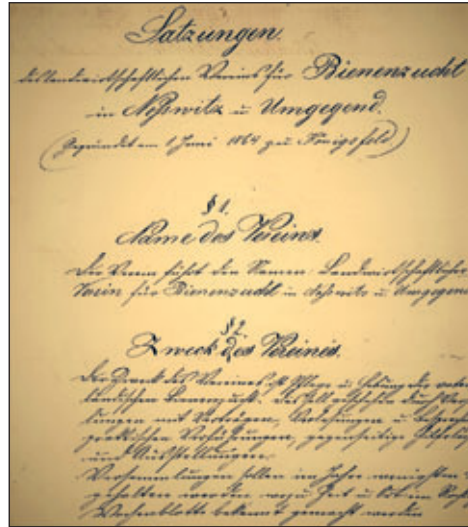 Satzungen
des landwirtschaftlichen Vereins für Bienenzucht
in Noßwitz u Umgegend.
(Gegründet am 1 Juni 1864 zu Königsfeld)
§ 1.
Name des Vereins.
Der Verein führt den Namen: Landwirtschaftlicher
Verein für Bienenzucht in Noßwitz u. Umgegend
§ 2.
Zweck des Vereines.
Der Zweck des Vereines ist Pflege u. Hebung der vater
ländischen Bienenzucht. Dies soll geschehen durch
lungen mit Vorträgen, Verlesungen u.
praktischen Vorführungen, gegenseitige
und Ausstellungen.
Versammlungen sollen im Jahre wenigstens
gehalten werden wozu Zeit u. Ort im
Wochenblatte bekannt gemacht werden